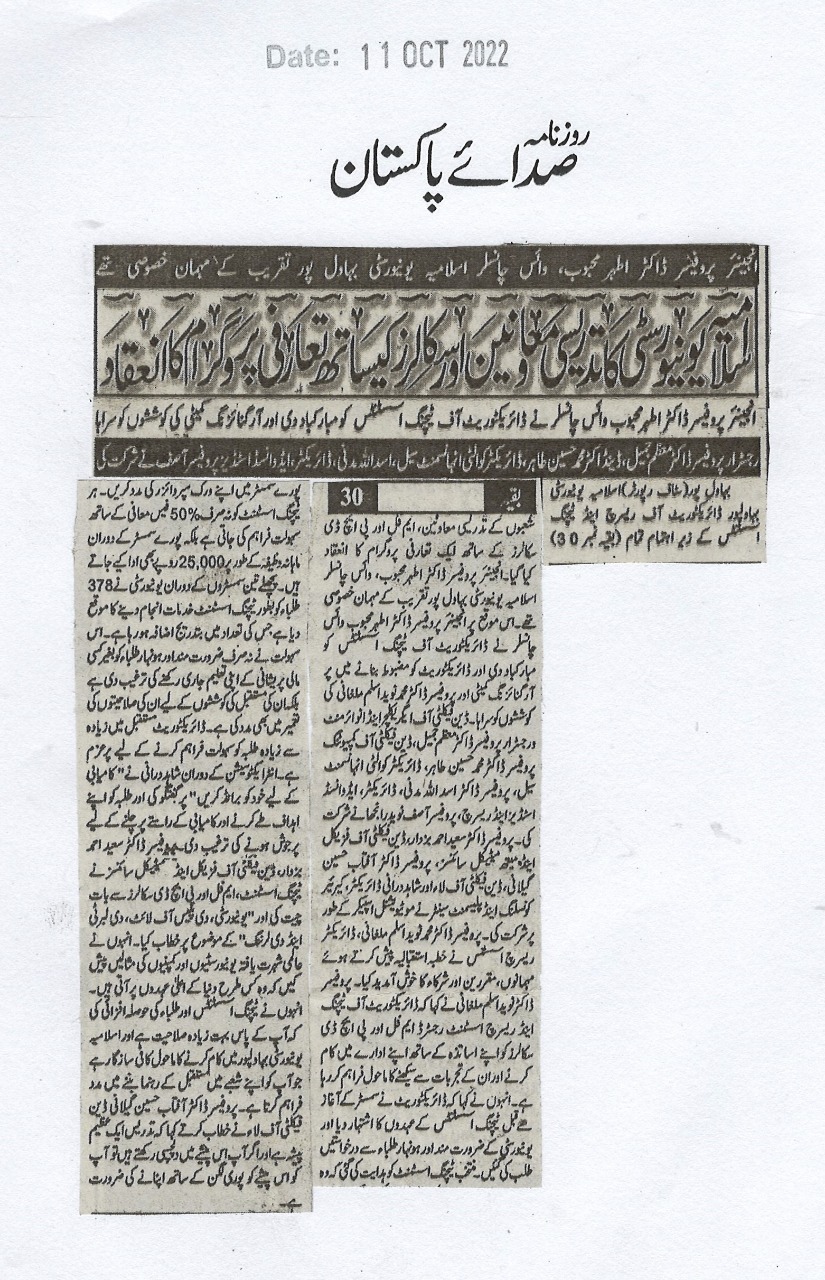 Date: 11 OCT 2022
روزنامہ
صدائے پاکستان
انجینئر پروفیسر ڈاکٹر اطہر محبوب، وائس چانسلر اسلامیہ یونیورسٹی بہاول پور تقریب کے مہمان خصوصی تھے
اسلامیہ یونیورسٹی کا تدریسی معاونین اور سکالرز کیساتھ تعارفی پروگرام کا انعقاد
انجینئر پروفیسر ڈاکٹر اطہر محبوب وائس چانسلر نے ڈائریکٹوریٹ آف ٹیچنگ اسسٹنٹس کو مبارکباد دی اور آرگنائزنگ کمیٹی کی کوششوں کو سراہا
رجسٹرار پروفیسر ڈاکٹر معظم جمیل، ڈینڈاکٹر محمد حسین طاہر، ڈائریکٹر کوالٹی انہانسمنٹ سیل، اسد اللہ مدنی، ڈائریکٹر، ایڈوانسڈ اسٹڈیز پروفیسر آصف نے شرکت کی
بہاول پور (سٹاف رپورٹر) اسلامیہ یونیورسٹی
بہاولپور ڈائریکٹوریٹ آف ریسرچ اینڈ ٹیچنگ
اسسٹنٹس کے زیر اہتمام تمام (بقیہ نمبر 30)
بقیہ 30
شعبوں کے تدریسی معاونین، ایم فل اور پی ایچ ڈی
سکالرز کے ساتھ ایک تعارفی پروگرام کا انعقاد
کیا گیا۔ انجینئر پروفیسر ڈاکٹر اطہر محبوب، وائس چانسلر
اسلامیہ یونیورسٹی بہاول پور تقریب کے مہمان خصوصی
تھے۔ اس موقع پر انجینئر پروفیسر ڈاکٹر اطہر محبوب وائس
چانسلر نے ڈائریکٹوریٹ آف ٹیچنگ اسسٹنٹس کو
مبارکباد دی اور ڈائریکٹوریٹ کو مضبوط بنانے میں پر
آرگنائزنگ کمیٹی اور پروفیسر ڈاکٹر محمد نوید اسلم ملغانی کی
کوششوں کو سراہا۔ ڈین فیکلٹی آف ایگریکلچر اینڈ انوائرمنٹ
و رجسٹرار پروفیسر ڈاکٹر معظم جمیل، ڈین فیکلٹی آف کمپیوٹنگ
پروفیسر ڈاکٹر محمد حسین طاہر، ڈائریکٹر کوالٹی انہانسمنٹ
سیل، پروفیسر ڈاکٹر اسد اللہ مدنی، ڈائریکٹر، ایڈوانسڈ
اسٹڈیز اینڈ ریسرچ، پروفیسر آصف نوید رانجھا نے شرکت
کی۔ پروفیسر ڈاکٹر سعید احمد بزدار، ڈین فیکلٹی آف فزیکل
اینڈ میتھ میٹیکل سائنسز، پروفیسر ڈاکٹر آفتاب حسین
گیلانی، ڈین فیکلٹی آف لاء اور شاہد درانی ڈائریکٹر، کیریئر
کونسلنگ اینڈ پلیسمنٹ سینٹر نے موٹیویشنل اسپیکر کے طور
پر شرکت کی۔ پروفیسر ڈاکٹر محمد نوید اسلم ملغانی، ڈائریکٹر
ریسرچ اسسٹنٹس نے خطبہ استقبالیہ پیش کرتے ہوئے
مہمانوں، مقررین اور شرکاء کا خوش آمدید کیا۔ پروفیسر
ڈاکٹر نوید اسلم ملغانی نے کہا کہ ڈائریکٹوریٹ آف ٹیچنگ
اینڈ ریسرچ اسسٹنٹ رجسٹرڈ ایم فل اور پی ایچ ڈی
سکالرز کو اپنے اساتذہ کے ساتھ اپنے ادارے میں کام
کرنے اور ان کے تجربات سے سیکھنے کا ماحول فراہم کر رہا
ہے۔ انہوں نے کہا کہ ڈائریکٹوریٹ نے سمسٹر کے آغاز
سے قبل ٹیچنگ اسسٹنٹس کے عہدوں کا اشتہار دیا اور
یونیورسٹی کے ضرورت مند اور ہونہار طلباء سے درخواستیں
طلب کی گئیں۔ منتخب ٹیچنگ اسسٹنٹ کو ہدایت کی گئی کہ وہ
پورے سمسٹر میں اپنے ورک سپروائزر کی مدد کریں۔ ہر
ٹیچنگ اسسٹنٹ کو نہ صرف %50 فیس معافی کے ساتھ
سہولت فراہم کی جاتی ہے بلکہ پورے سمسٹر کے دوران
ماہانہ وظیفہ کے طور پر 25,000 روپے بھی ادا کیے جاتے
ہیں۔ پچھلے تین سمسٹروں کے دوران یونیورسٹی نے 378
طلباء کو بطور ٹیچنگ اسسٹنٹ خدمات انجام دینے کا موقع
دیا ہے جس کی تعداد میں بتدریج اضافہ ہو رہا ہے۔ اس
سہولت نے نہ صرف ضرورت مند اور ہونہار طلباء کو بغیر کسی
مالی پریشانی کے اپنی تعلیم جاری رکھنے کی ترغیب دی ہے
بلکہ ان کی مستقبل کی کوششوں کے لیے ان کی صلاحیتوں کی
تعمیر میں بھی مدد کی ہے۔ ڈائریکٹوریٹ مستقبل میں زیادہ
سے زیادہ طلبہ کو سہولت فراہم کرنے کے لیے پرعزم
ہے۔ انٹرایکٹو سیشن کے دوران شاہد درانی نے "کامیابی
کے لیے خود کو برانڈ کریں" پر گفتگو کی اور طلبہ کو اپنے
اہداف طے کرنے اور کامیابی کے راستے پر چلنے کے لیے
پرجوش ہونے کی ترغیب دی۔ پروفیسر ڈاکٹر سعید احمد
بزدار، ڈین فیکلٹی آف فزیکل اینڈ میتھمیٹیکل سائنسز نے
ٹیچنگ اسسٹنٹ، ایم فل اور پی ایچ ڈی سکالرز سے بات
چیت کی اور "یونیورسٹی، دی پلیس آف لائٹ، دی لبرٹی
اینڈ دی لرننگ" کے موضوع پر خطاب کیا۔ انہوں نے
عالمی شہرت یافتہ یونیورسٹیوں اور کمپنیوں کی مثالیں پیش
کیں کہ وہ کس طرح دنیا کے اعلیٰ عہدوں پر آتی ہیں۔
انہوں نے ٹیچنگ اسسٹنٹس اور طلباء کی حوصلہ افزائی کی
کہ آپ کے پاس بہت زیادہ صلاحیت ہے اور اسلامیہ
یونیورسٹی بہاولپور میں کام کرنے کا ماحول کافی سازگار ہے
جو آپ کو اپنے شعبے میں مستقبل کے رہنما بننے میں مدد
فراہم کرتا ہے۔ پروفیسر ڈاکٹر آفتاب حسین گیلانی ڈین
فیکلٹی آف لاء نے خطاب کرتے کہا کہ تدریس ایک عظیم
پیشہ ہے اور اگر آپ اس شعبے میں دلچسپی رکھتے ہیں تو آپ
کو اس پیشے کو پوری لگن کے ساتھ اپنانے کی ضرورت
ہے۔